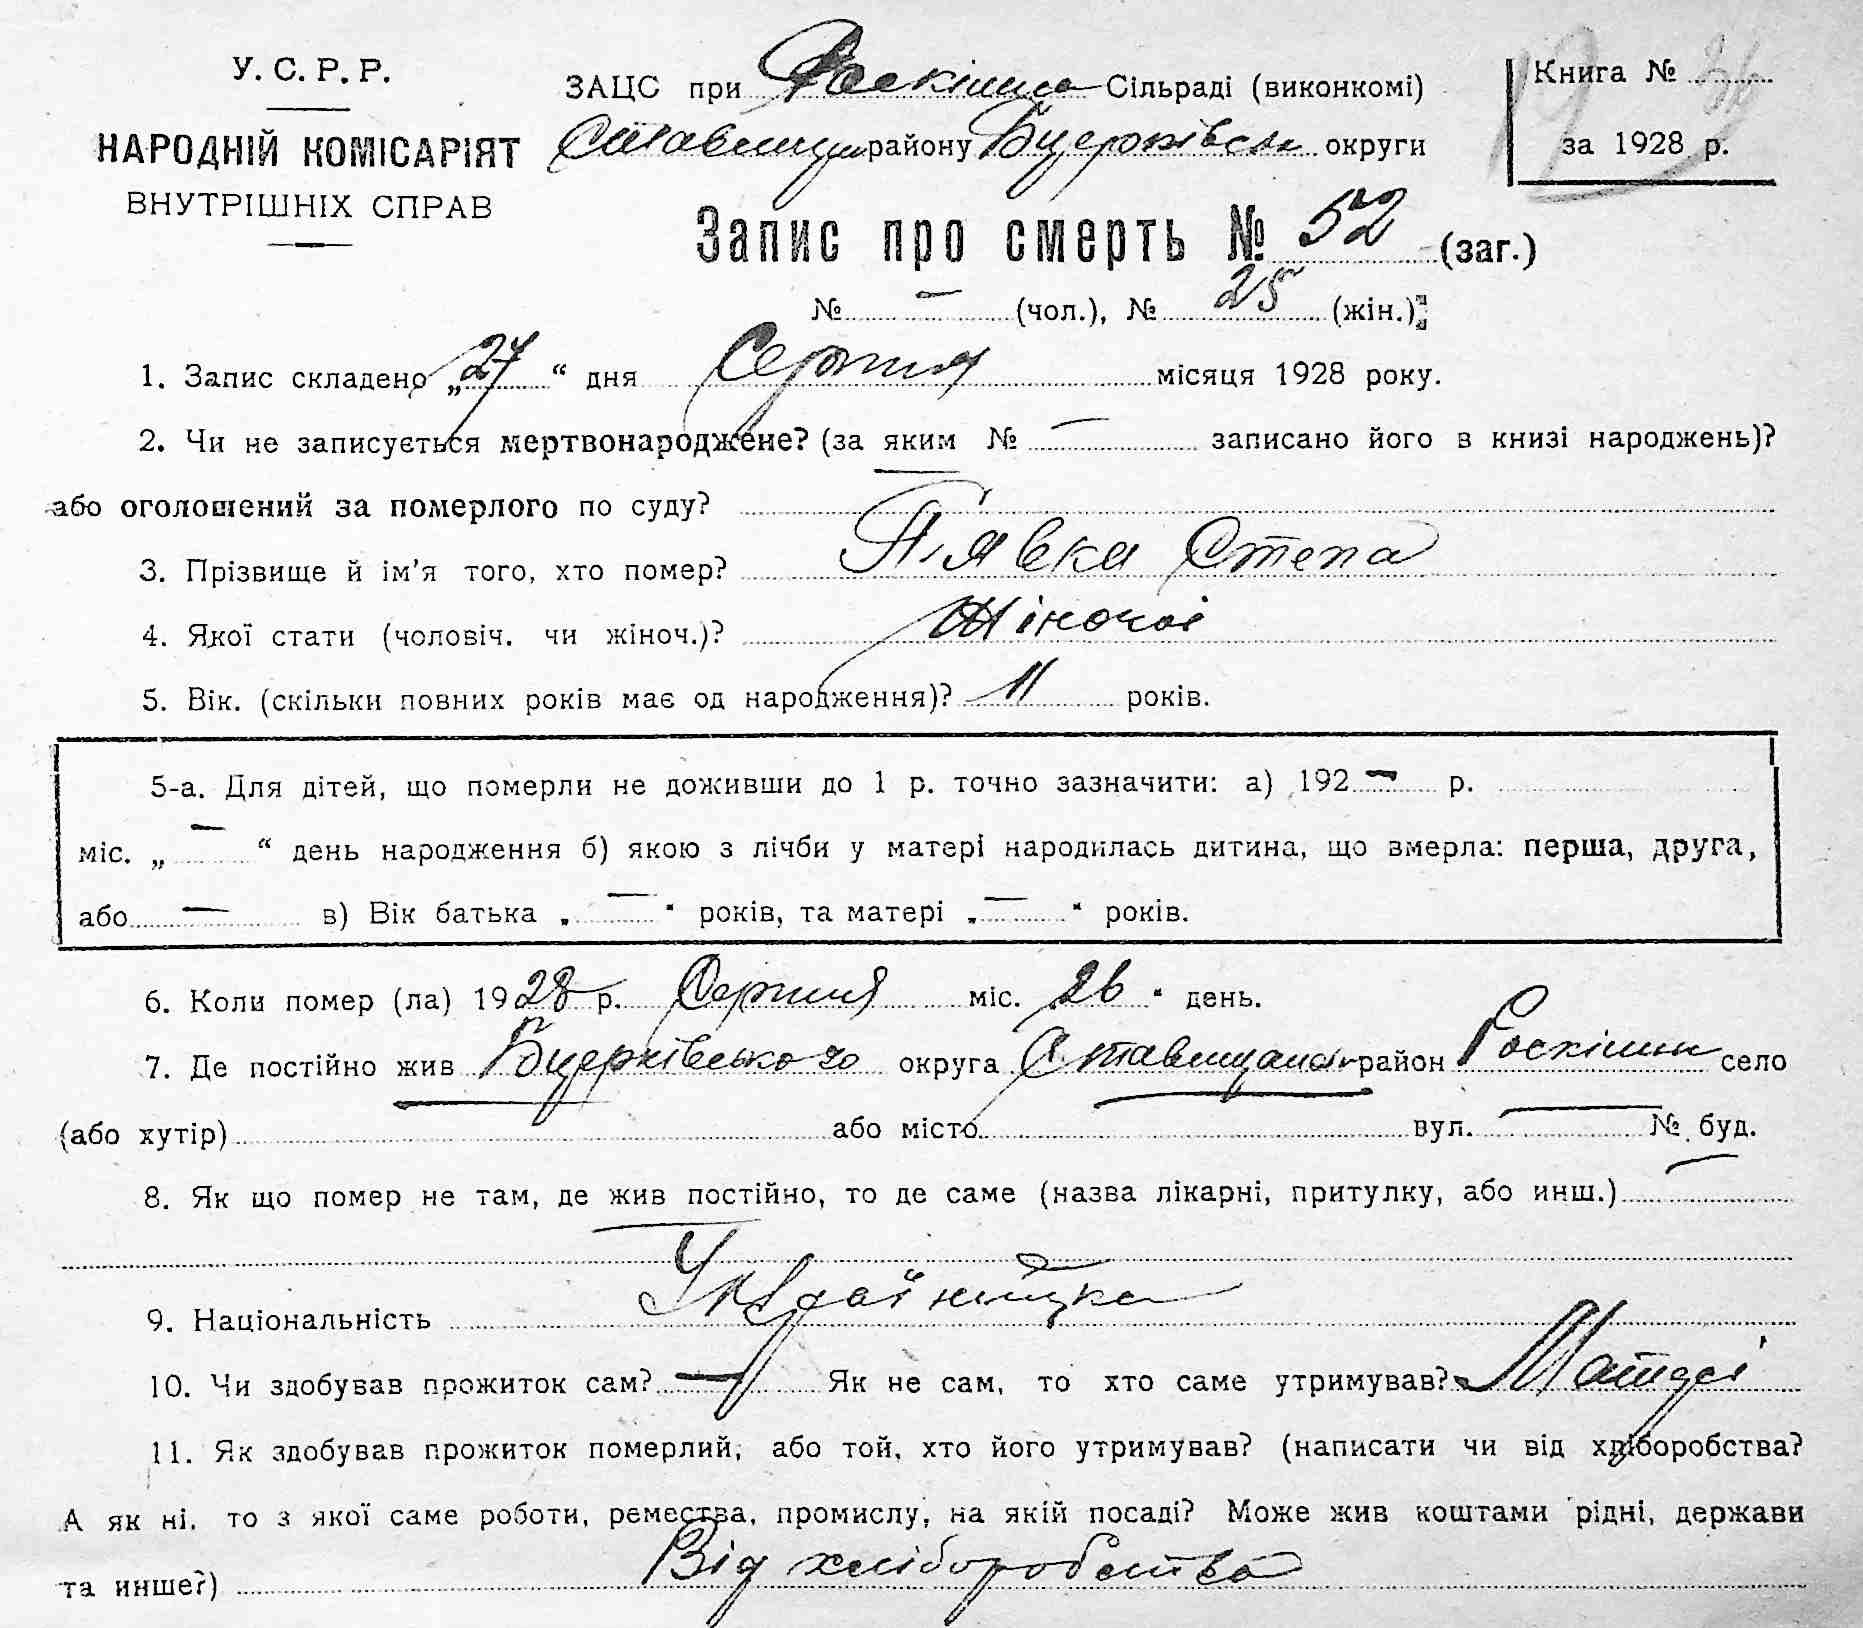 У. С. Р. Р.
НАРОДНІЙ КОМІСАРІЯТ
ВНУТРІШНІХ СПРАВ
ЗАЦС при Роскішна Сільраді (виконкомі)
району Бцерківськ округи
Книга №
за 1928 р.
Запис про смерть № 52 (заг.)
№ — (чол.), № 25 (жін.)
1. Запис складено „27“ дня Серпня місяця 1928 року.
2. Чи не записується мертвонароджене? (за яким № — записано його в книзі народжень)?
або оголошений за померлого по суду? —
3. Прізвище й ім'я того, хто помер? П'явка Степа
4. Якої стати (чоловіч. чи жіноч.)? Жіночої
5. Вік. (скільки повних років має од народження)? 11 років.
5-а. Для дітей, що померли не доживши до 1 р. точно зазначити: а) 192 — р.
міс. „ — “ день народження б) якою з лічби у матері народилась дитина, що вмерла: перша, друга,
або — в) Вік батька „ — “ років, та матері „ — “ років.
6. Коли помер (ла) 1928 р. Серпня міс. 26 “ день.
7. Де постійно жив Бцерківського округа Ставищанськ район Роскішна село
(або хутір) — або місто — вул. — № буд. —
8. Як що помер не там, де жив постійно, то де саме (назва лікарні, притулку, або инш.)
—
9. Національність Українка
10. Чи здобував прожиток сам? — Як не сам, то хто саме утримував?
11. Як здобував прожиток померлий, або той, хто його утримував? (написати чи від хліборобства?
А як ні, то з якої саме роботи, ремества, промислу, на якій посаді? Може жив коштами рідні, держави
та инше?) Від хліборобства